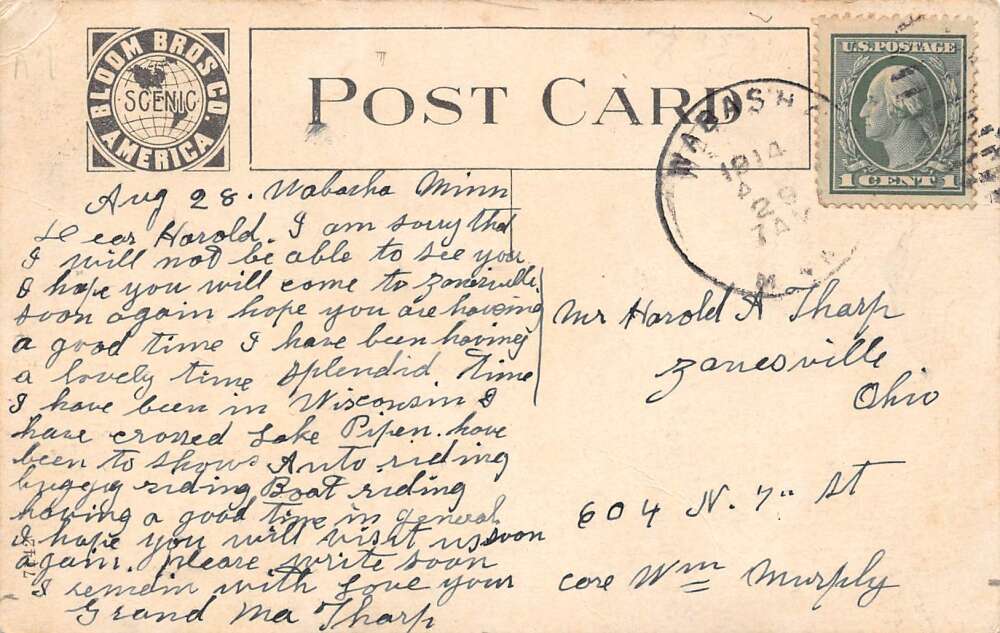 BLOOM BROS. CO.
SCENIC
AMERICA
POST CARD
U.S. POSTAGE
1 CENT 1
WABASHA
1914
7 AM
MINN
Aug 28. Wabasha Minn
Dear Harold. I am sorry that
I will not be able to see you
I hope you will come to Zanesville
soon again hope you are having
a good time I have been having
a lovely time splendid time
I have been in Wisconsin I
have crossed Lake Pipen. have
been to shows Auto riding
buggy riding Boat riding
having a good time in general
I hope you will visit us soon
again. please write soon
I remain with love your
Grand Ma Tharp
Mr Harold A Tharp
Zanesville
Ohio
604 N. 7" St
care Wm Murphy